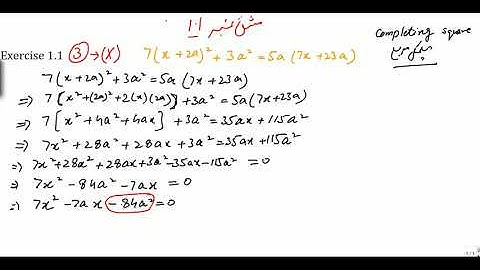 مشق نمبر 1.1
completing square
Exercise 1.1 ③→(X) 7(x+2a)² + 3a² = 5a (7x+23a)
7(x+2a)² + 3a² = 5a (7x+23a)
⇒ 7[x²+(2a)²+2(x)(2a)] + 3a² = 5a(7x+23a)
⇒ 7[x²+4a²+4ax] + 3a² = 35ax + 115a²
⇒ 7x² + 28a² + 28ax + 3a² = 35ax + 115a²
⇒ 7x² + 28a² + 28ax + 3a² - 35ax - 115a² = 0
⇒ 7x² - 84a² - 7ax = 0
⇒ 7x² - 7ax - 84a² = 0